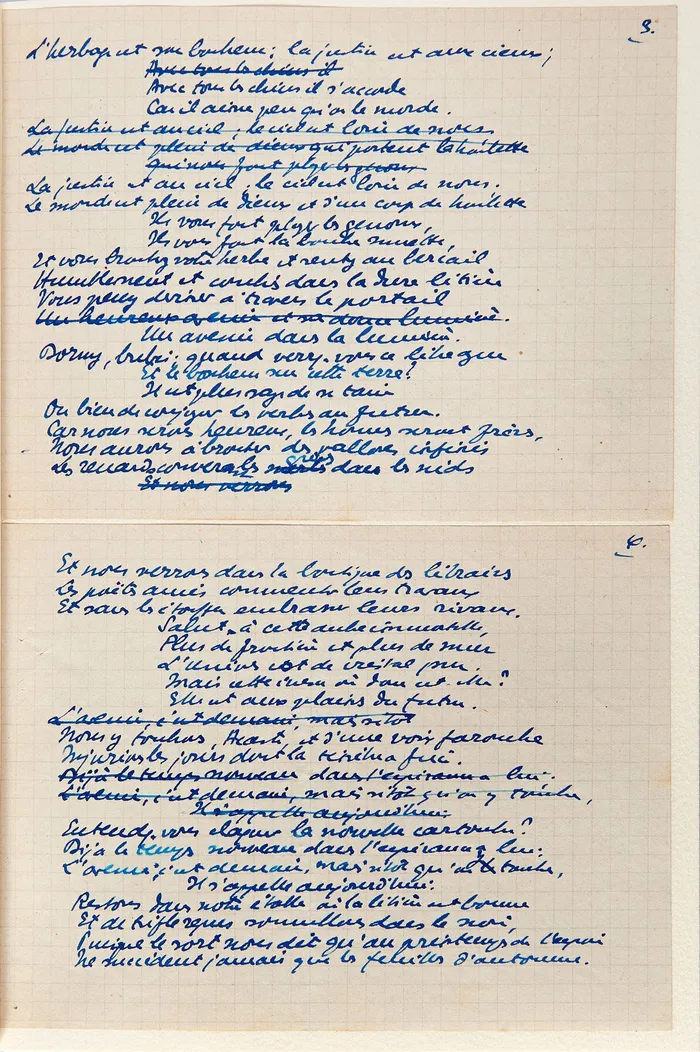 3.
L'herbage est son bonheur ; la justice est aux cieux ;
Avec tous les chiens il
Avec tous les chiens il s'accorde
Car il aime peu qu'on le morde.
La justice est au ciel ; le ciel est loin de nous
Le monde est plein de dieux qui portent la houlette
qui nous font ployer les genoux
La justice est au ciel ; le ciel est loin de nous.
Le monde est plein de dieux et d'un coup de houlette
Ils vous font ployer les genoux,
Ils vous font la bouche muette,
Et vous broutez votre herbe et rentrez au bercail
Humblement et couchés dans la dure litière
Vous pouvez deviner à travers le portail
Un heureux avenir et sa douce lumière.
Un avenir dans la lumière.
Dormez, brebis ; quand verrez-vous la liberté
Et le bonheur sur cette terre ?
Il est plus sage de se taire
Ou bien de conjuguer les verbes au futur.
Car nous serons heureux, les hommes seront frères,
Nous aurons à brouter des vallons infinis
Les renards couveront les dans les nids
Et nous verrons
4.
Et nous verrons dans la boutique des libraires
Les poètes amis commenter leurs travaux
Et sans les étouffer embrasser leurs rivaux.
Salut à cette aube immortelle,
Plus de frontière et plus de mur
L'univers est de cristal pur.
Mais cette ivresse où donc est-elle ?
Elle est aux plaines du futur.
L'avenir, c'est demain, mais sitôt
Nous y touchons, Acaste, et d'une voix farouche
Injurions les jours dont la
Déjà le temps nouveau dans l'espérance a lui.
L'avenir, c'est demain, mais sitôt qu'on y touche,
Il s'appelle aujourd'hui.
Entendez-vous claquer la nouvelle cartouche ?
Déjà le temps nouveau dans l'espérance a lui.
L'avenir, c'est demain, mais sitôt qu'on le touche,
Il s'appelle aujourd'hui.
Restons dans notre étable où la litière est bonne
Et de trèfle repus sommeillons dans le noir,
Puisque le sort nous dit qu'au printemps de l'espoir
Ne succèdent jamais que les feuilles d'automne.